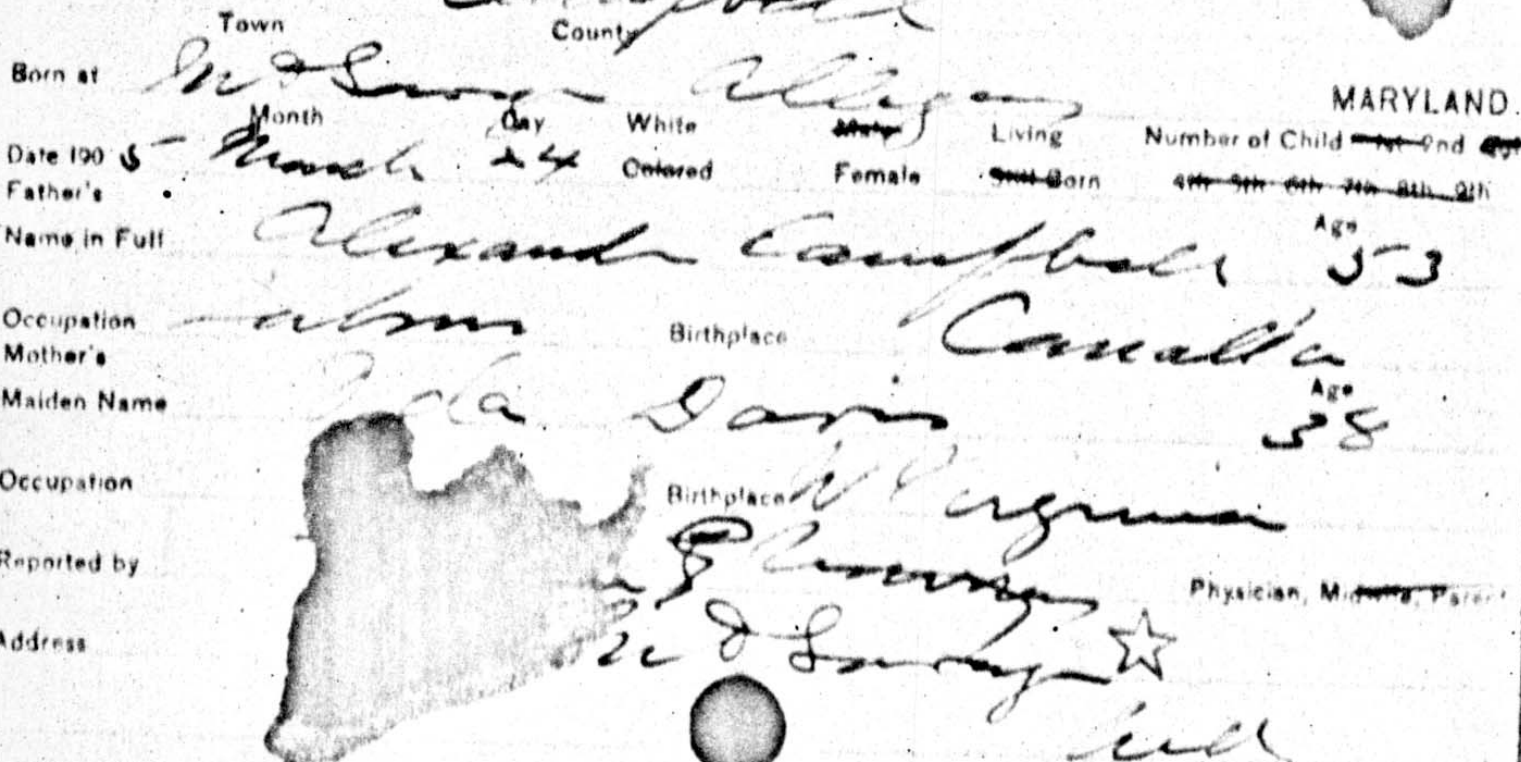 Campbell
Town County
Born at Mt Savage Allegany MARYLAND.
Month Day White Male Living Number of Child 1st 2nd
Date 1905 March 24 Colored Female Still Born 4th 5th 6th 7th 8th 9th
Father's
Name in Full Alexander Campbell Age 53
Occupation Birthplace Canada
Mother's
Maiden Name Davis Age 38
Occupation Birthplace W Virginia
Reported by Physician, Midwife, Parent
Address Mt Savage
Md